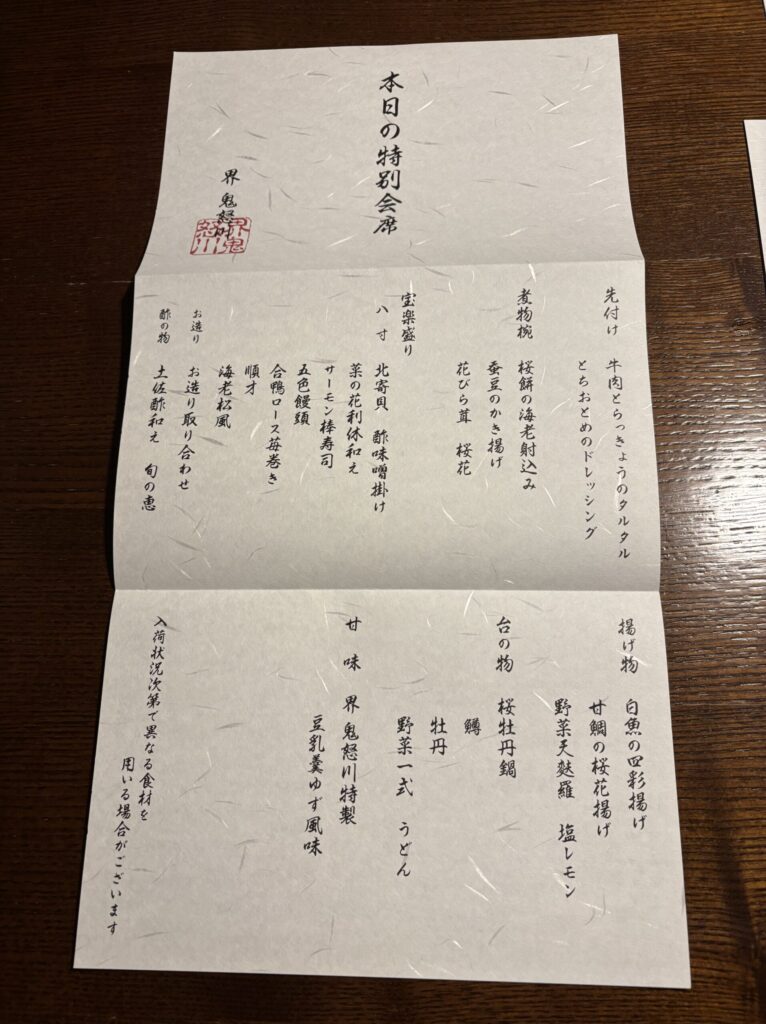 本日の特別会席
界 鬼怒川
界鬼怒川
先付け 牛肉とらっきょうのタルタル
とちおとめのドレッシング
煮物椀 桜餅の海老射込み
蚕豆のかき揚げ
花びら茸 桜花
宝楽盛り
八寸 北寄貝 酢味噌掛け
菜の花利休和え
サーモン棒寿司
五色饅頭
合鴨ロース苺巻き
順才
海老松風
お造り お造り取り合わせ
酢の物 土佐酢和え 旬の恵
揚げ物 白魚の四彩揚げ
甘鯛の桜花揚げ
野菜天麩羅 塩レモン
台の物 桜牡丹鍋
鱒
牡丹
野菜一式 うどん
甘味 界 鬼怒川特製
豆乳羹ゆず風味
入荷状況次第で異なる食材を
用いる場合がございます